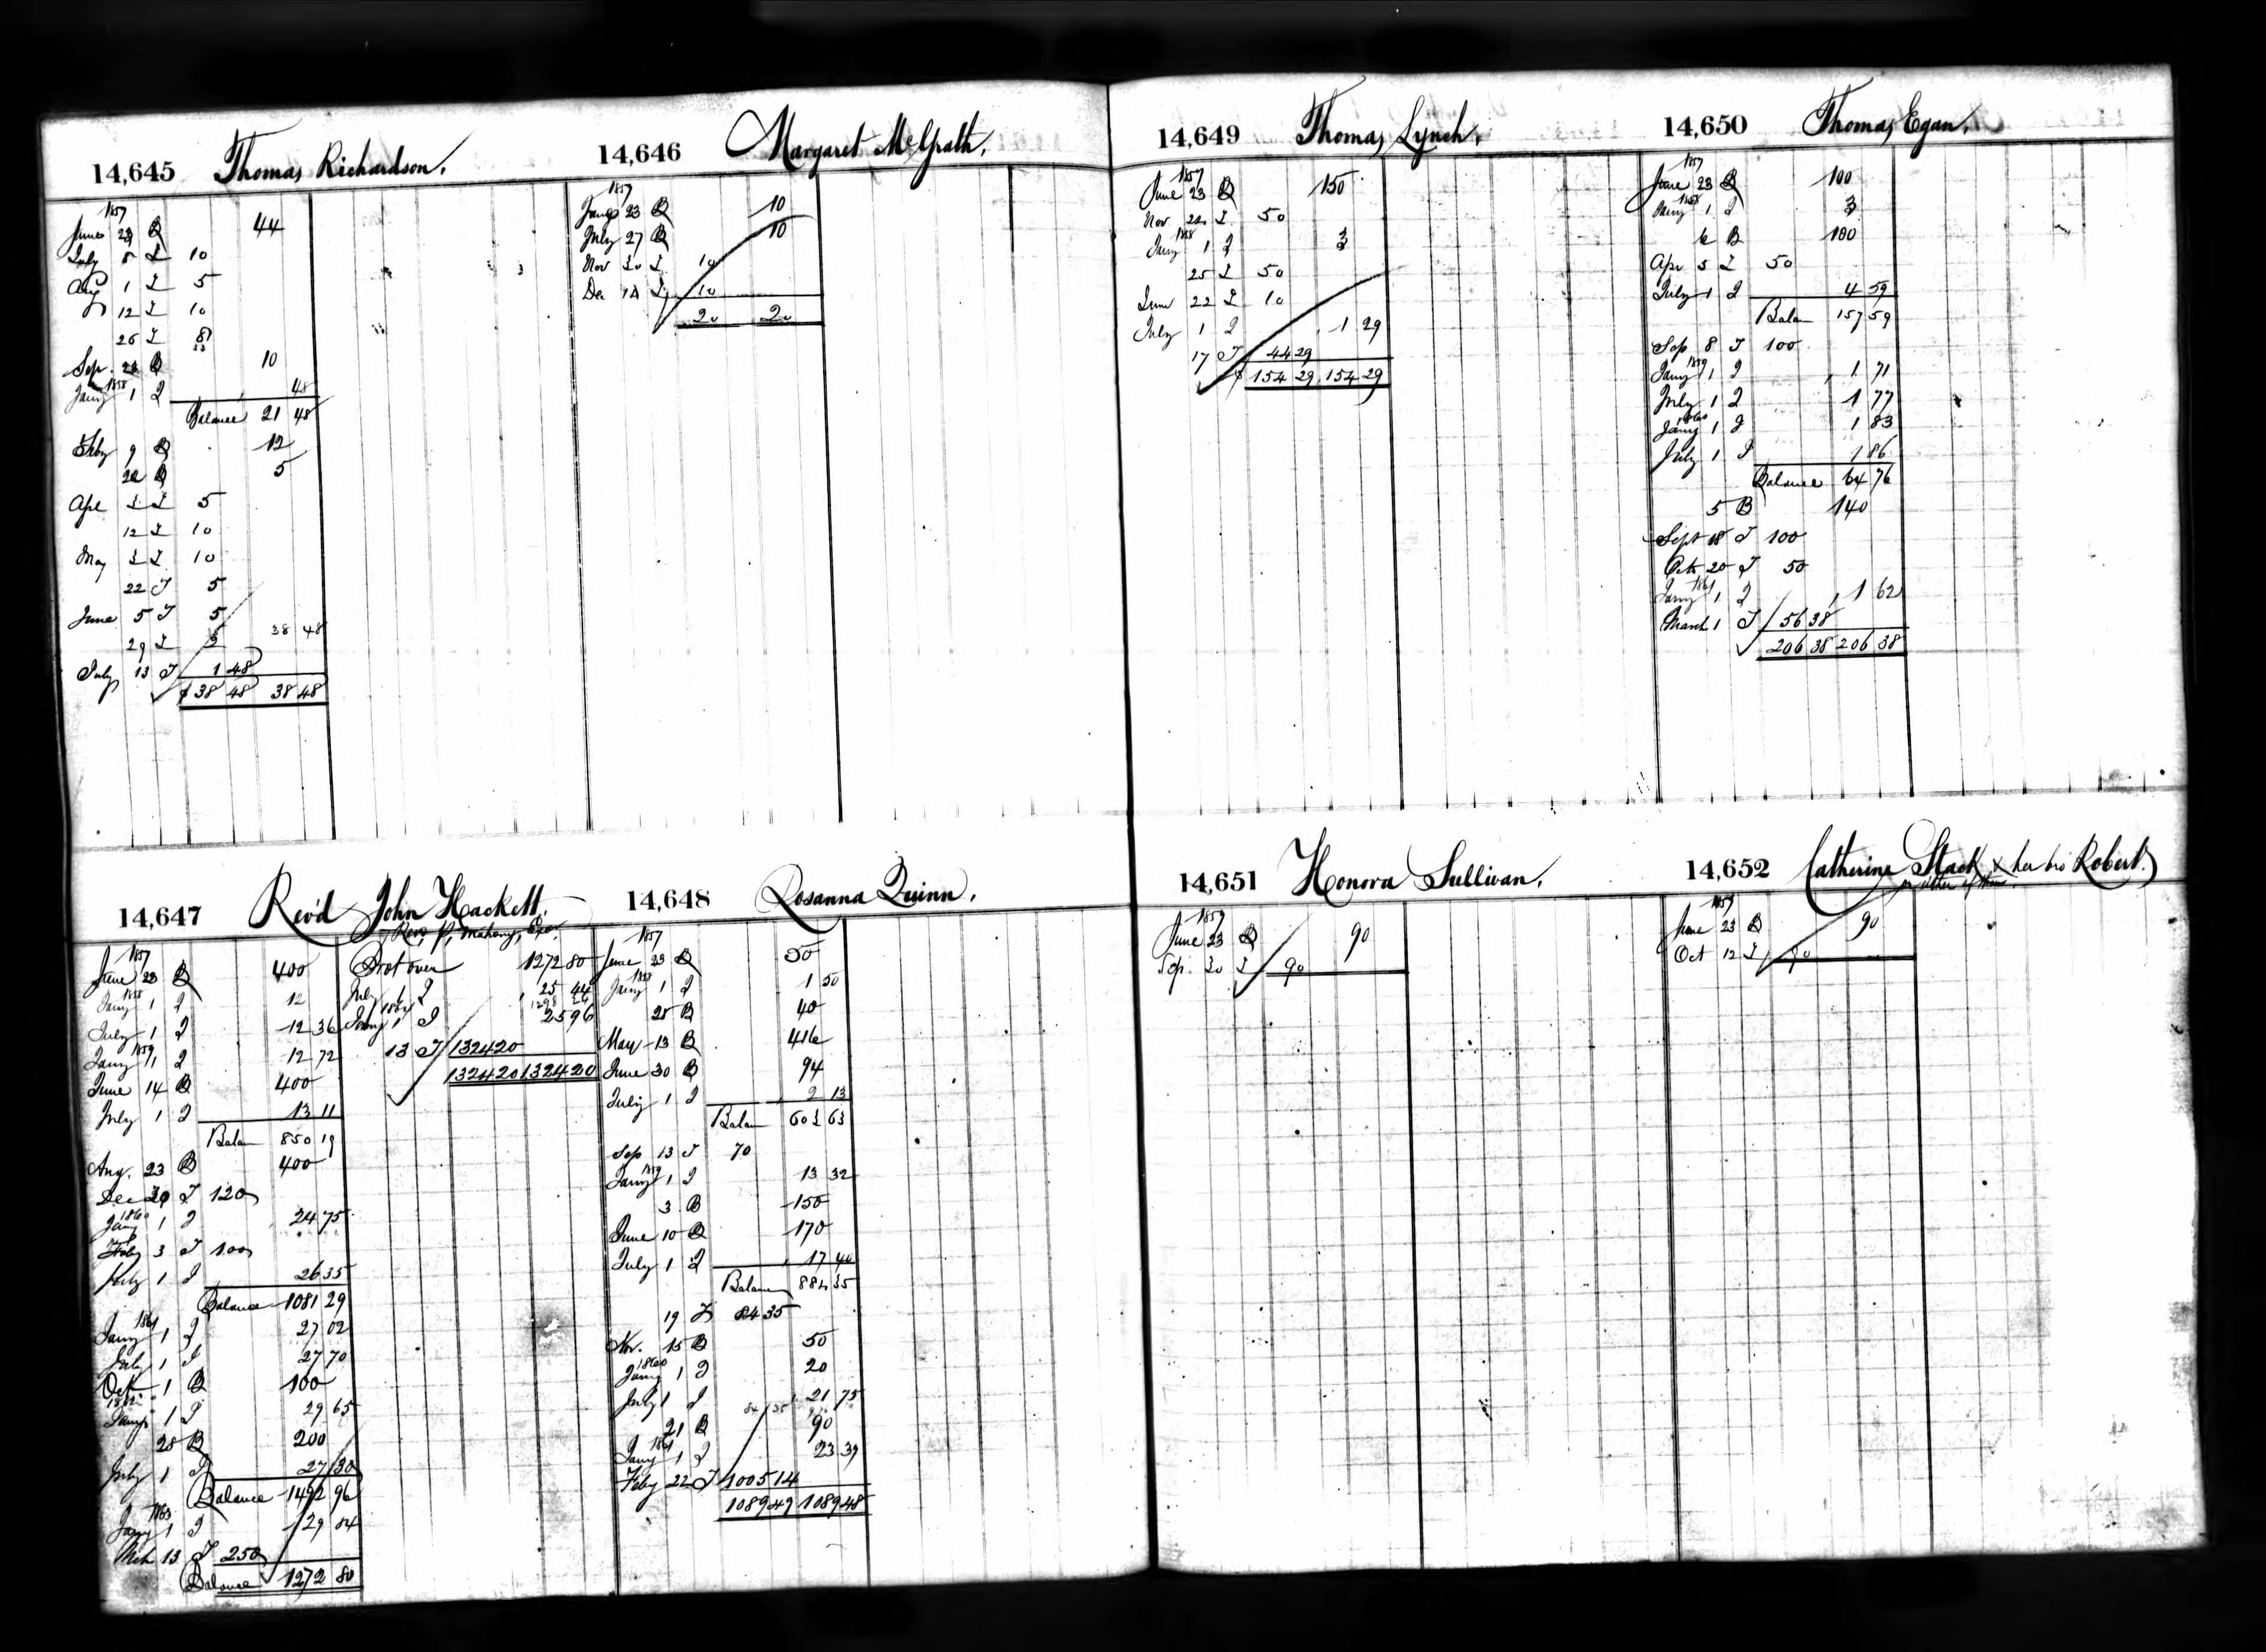 14,645 Thomas Richardson.
1857
June 23 B 44
July 8 T 10
Aug 1 T 5
12 T 10
26 T 8
Sep. 23 B 10
1858
Jany 1 I 48
Balance 21 48
Feby 9 B 12
22 B 5
Apl 3 T 5
12 T 10
May 3 T 10
22 T 5
June 5 T 5
29 T 2 38 48
July 13 T 1 48
$ 38 48 38 48
14,646 Margaret McGrath.
1857
June 23 B 10
July 27 B 10
Nov 30 T 10
Dec 14 T 10
20 20
14,647 Rev'd John Hackett.
Rev. P. Mahony, Exor.
1857
June 23 B 400
1858
Jany 1 I 12
July 1 I 12 36
1859
Jany 1 I 12 72
June 14 B 400
July 1 I 13 11
Balan 850 19
Aug. 23 B 400
Dec 30 T 120
1860
Jany 1 I 24 75
Feby 3 T 100
July 1 I 26 35
Balance 1081 29
1861
Jany 1 I 27 02
July 1 I 27 70
Oct 1 B 100
1862
Jany 1 I 29 65
28 B 200
July 1 I 27 30
Balance 1492 96
1863
Jany 1 I 29 84
Mch 13 T 250
Balance 1272 80
Brot over 1272 80
July 1 I 25 44
1298 24
1864
Jany 1 I 25 96
13 T 1324 20
1324 20 1324 20
14,648 Rosanna Quinn.
1857
June 23 B 50
1858
Jany 1 I 1 50
28 B 40
May 13 B 416
June 30 B 94
July 1 I 2 13
Balan 603 63
Sep 13 T 70
1859
Jany 1 I 13 32
3 B 150
June 10 B 170
July 1 I 17 40
Balance 884 35
19 T 84 35
Nov. 15 B 50
1860
Jany 1 I 20
July 1 I 21 75
84 35
21 B 90
1861
Jany 1 I 23 39
Feby 22 T 1005 14
1089 49 1089 48
14,649 Thomas Lynch.
1857
June 23 B 150
Nov 24 T 50
1858
Jany 1 I 3
25 T 50
June 22 T 10
July 1 I 1 29
17 T 44 29
$ 154 29 154 29
14,650 Thomas Egan.
1857
June 23 B 100
1858
Jany 1 I 3
6 B 100
Apr 5 T 50
July 1 I 4 59
Balan 157 59
Sep 8 T 100
1859
Jany 1 I 1 71
July 1 I 1 77
1860
Jany 1 I 1 83
July 1 I 1 86
Balance 64 76
5 B 140
Sept 18 T 100
Oct 20 T 50
1861
Jany 1 I 1 62
March 1 T 56 38
206 38 206 38
14,651 Honora Sullivan.
1857
June 23 B 90
Sep. 30 T 90
14,652 Catherine Stack & her bro Robert.
or either of them
1857
June 23 B 90
Oct 12 T 90